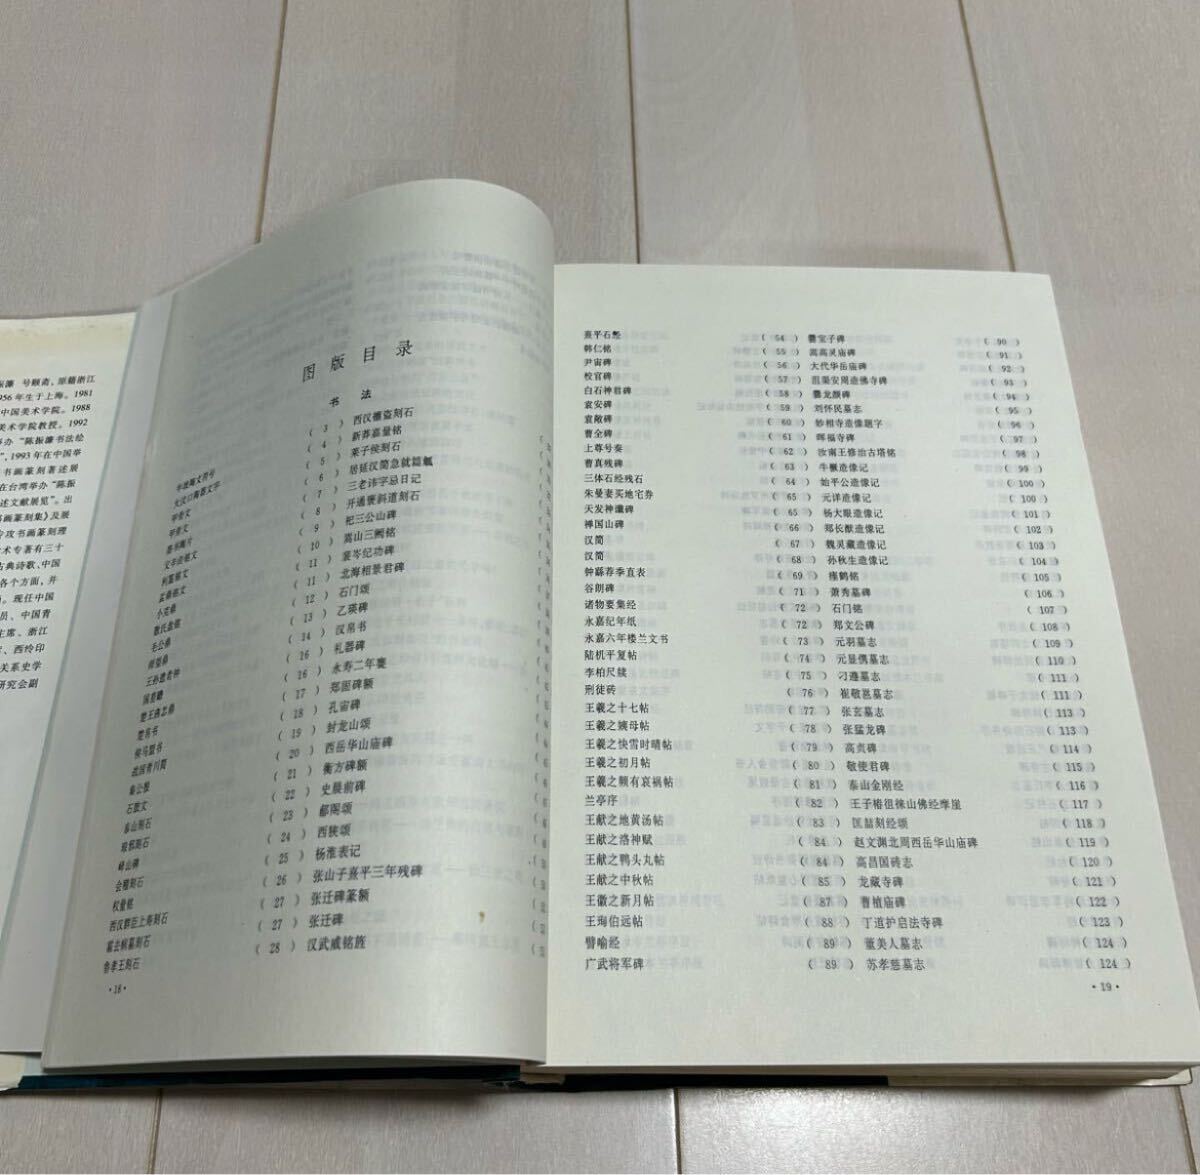 振濂 号颐斋，原籍浙江
956年生于上海。1981
中国美术学院。1988
美术学院教授。1992
举办“陈振濂书法绘
”，1993年在中国举
书画篆刻著述展
在台湾举办“陈振
述文献展览”。出
书画篆刻集》及展
专攻书画篆刻理
术专著有三十
古典诗歌、中国
各个方面，并
。现任中国
员、中国青
主席、浙江
、西泠印
关系史学
研究会副
图版目录
书法
半坡陶文符号 （3）
大汶口陶器文字 （4）
甲骨文 （5）
甲骨文 （6）
墨书陶片 （7）
（8）
利簋铭文 （9）
盂鼎铭文 （10）
小克鼎 （11）
散氏盘铭 （11）
毛公鼎 （12）
颂壶鼎 （13）
王孙遗者钟 （14）
国差𦉜 （16）
楚王酓忎鼎 （16）
楚帛书 （17）
侯马盟书 （18）
战国青川简 （19）
秦公簋 （20）
石鼓文 （21）
泰山刻石 （22）
琅邪刻石 （23）
峄山碑 （24）
会稽刻石 （25）
权量铭 （26）
西汉群臣上寿刻石 （27）
霍去病墓刻石 （27）
鲁孝王刻石 （28）
西汉禳盗刻石
新莽嘉量铭
莱子侯刻石
居延汉简急就篇觚
三老讳字忌日记
开通褒斜道刻石
祀三公山碑
嵩山三阙铭
裴岑纪功碑
北海相景君碑
石门颂
乙瑛碑
汉帛书
礼器碑
永寿二年甕
郑固碑额
孔宙碑
封龙山颂
西岳华山庙碑
衡方碑额
史晨前碑
郙阁颂
西狭颂
杨淮表记
张山子熹平三年残碑
张迁碑篆额
张迁碑
汉武威铭旌
·18·
熹平石经 （54）
韩仁铭 （55）
尹宙碑 （56）
校官碑 （57）
白石神君碑 （58）
袁安碑 （59）
袁敞碑 （60）
曹全碑 （61）
上尊号奏 （62）
曹真残碑 （63）
三体石经残石 （64）
朱曼妻买地宅券 （65）
天发神谶碑 （65）
禅国山碑 （66）
汉简 （67）
汉简 （68）
钟繇荐季直表 （69）
谷朗碑 （71）
诸物要集经 （72）
永嘉纪年纸 （72）
永嘉六年楼兰文书 （73）
陆机平复帖 （74）
李柏尺牍 （75）
刑徒砖 （76）
王羲之十七帖 （77）
王羲之姨母帖 （78）
王羲之快雪时晴帖 （79）
王羲之初月帖 （80）
王羲之频有哀祸帖 （81）
兰亭序 （82）
王献之地黄汤帖 （83）
王献之洛神赋 （84）
王献之鸭头丸帖 （84）
王献之中秋帖 （85）
王徽之新月帖 （87）
王珣伯远帖 （88）
譬喻经 （89）
广武将军碑 （89）
爨宝子碑 （90）
嵩高灵庙碑 （91）
大代华岳庙碑 （92）
沮渠安周造佛寺碑 （93）
爨龙颜碑 （94）
刘怀民墓志 （95）
妙相寺造像题字 （96）
晖福寺碑 （97）
汝南王修治古塔铭 （98）
牛橛造像记 （99）
始平公造像记 （100）
元详造像记 （100）
杨大眼造像记 （101）
郑长猷造像记 （102）
魏灵藏造像记 （103）
孙秋生造像记 （104）
瘗鹤铭 （105）
萧秀墓碑 （106）
石门铭 （107）
郑文公碑 （108）
元羽墓志 （109）
元显儁墓志 （110）
刁遵墓志 （111）
崔敬邕墓志 （111）
张玄墓志 （113）
张猛龙碑 （113）
高贞碑 （114）
敬使君碑 （115）
泰山金刚经 （116）
王子椿徂徕山佛经摩崖 （117）
匡喆刻经颂 （118）
赵文渊北周西岳华山庙碑 （119）
高昌国砖志 （120）
龙藏寺碑 （121）
曹植庙碑 （122）
丁道护启法寺碑 （123）
董美人墓志 （124）
苏孝慈墓志 （124）
·19·